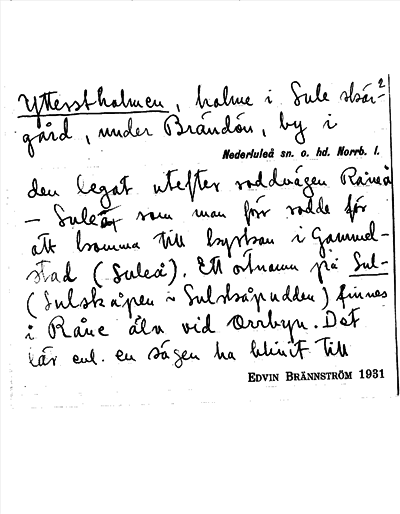 Ytterstholmen, holme i Luleå skär-²
gård, under Brändön, by i
Nederluleå sn. o. hd. Norrb. l.
den legat utefter roddvägen Råneå
– Luleå som man för rodde för
att komma till kyrkan i Gammel-
stad (Luleå). Ett ortnamn på Sul-
(Sulskåpen ~ Sulskåpudden) finnes
i Råne älv vid Orrbyn. Det
lär enl. en sägen ha blivit till
EDVIN BRÄNNSTRÖM 1931